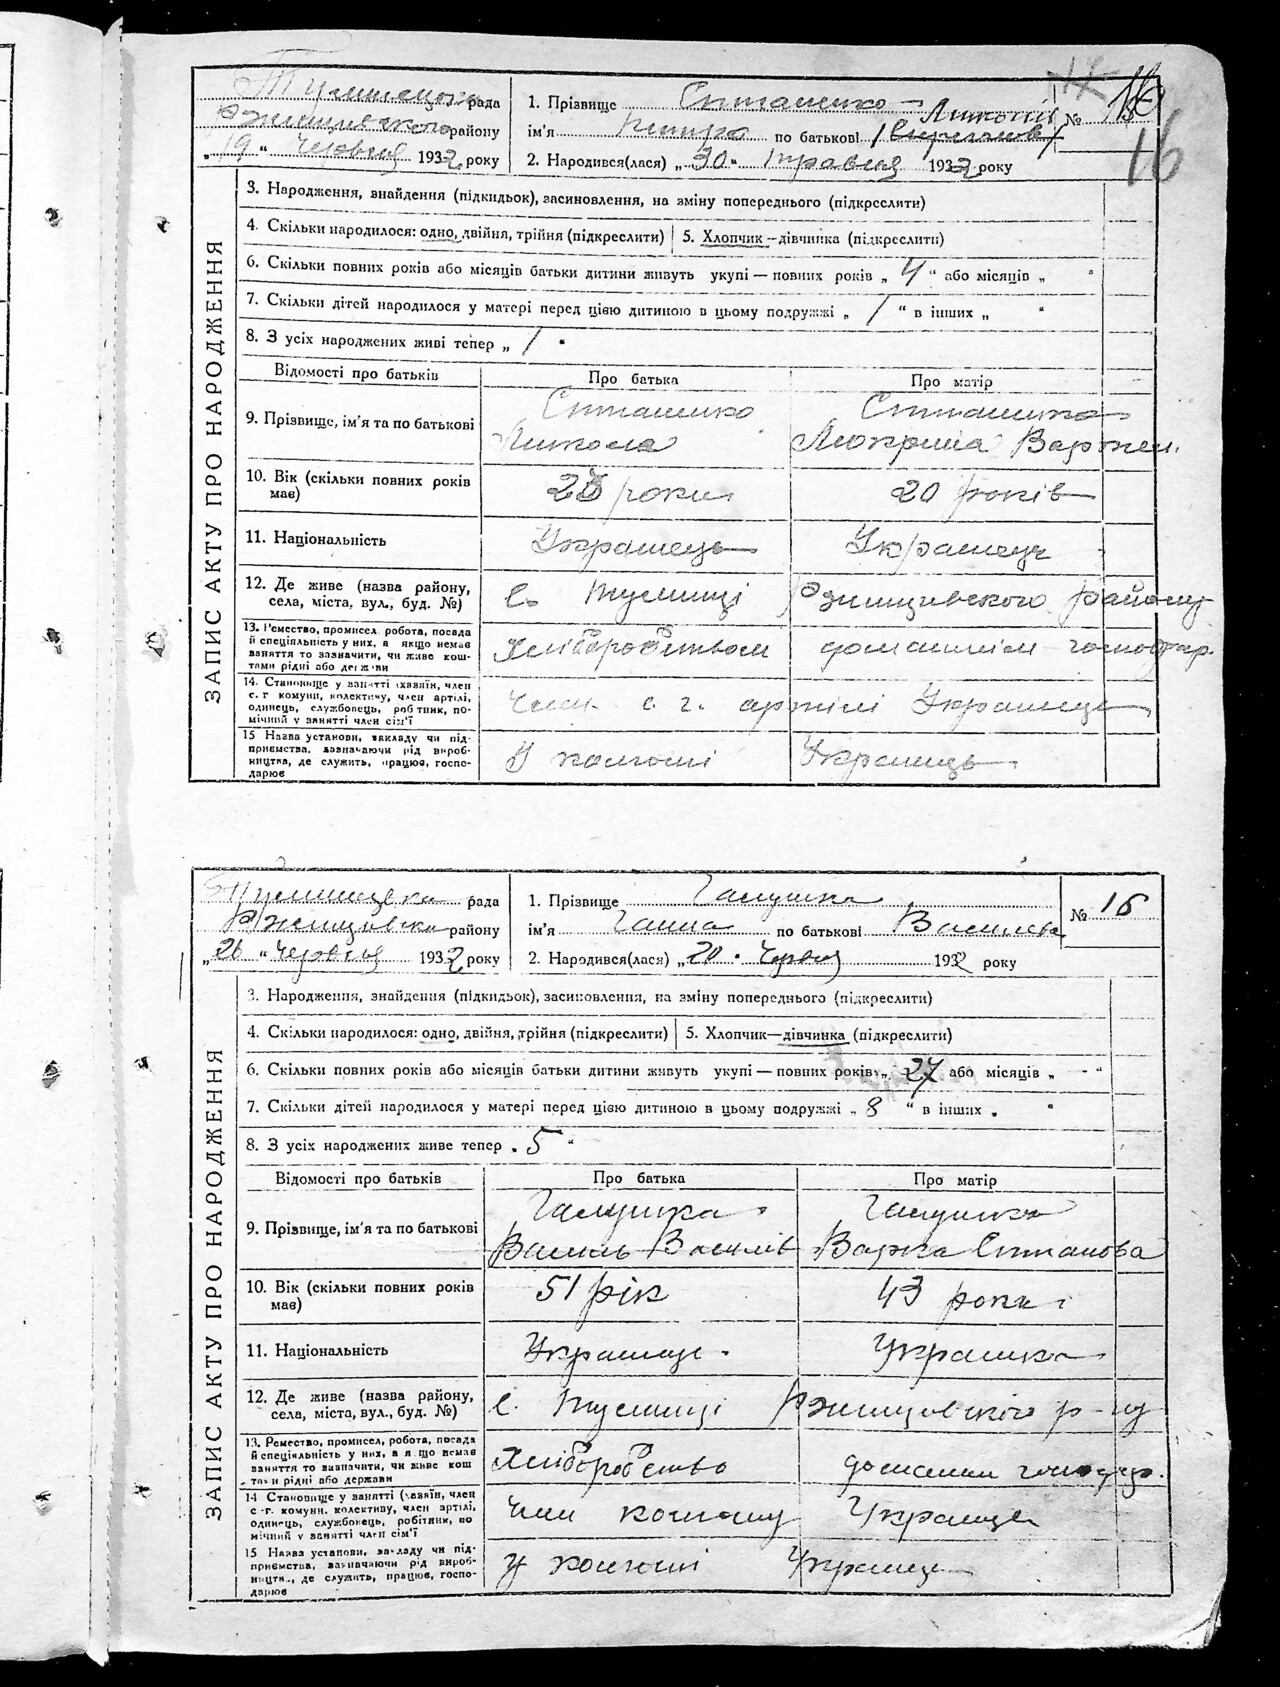 16
Тулинецька рада
Ржищівського району
„19“ Червня 1932 року
1. Прізвище
ім'я по батькові
№
2. Народився(лася) „30“ травня 1932 року
ЗАПИС АКТУ ПРО НАРОДЖЕННЯ
3. Народження, знайдення (підкидьок), засиновлення, на зміну попереднього (підкреслити)
4. Скільки народилося: одно, двійня, трійня (підкреслити) 5. Хлопчик—дівчинка (підкреслити)
6. Скільки повних років або місяців батьки дитини живуть укупі — повних років „4“ або місяців „ “
7. Скільки дітей народилося у матері перед цією дитиною в цьому подружжі „1“ в інших „ “
8. З усіх народжених живі тепер „1“
Відомості про батьків Про батька Про матір
9. Прізвище, ім'я та по батькові
Микола
10. Вік (скільки повних років має) роки 20 років
11. Національність Українець Українець
12. Де живе (назва району, села, міста, вул., буд. №) с. Тулинці Ржищівського району
13. Ремество, промисел, робота, посада й спеціяльність у них, а якщо немає заняття то зазначити, чи живе коштами рідні або держави Хліборобством домашнім господар.
14. Становище у занятті (хазяїн, член с.-г. комуни, колективу, член артілі, одинець, службовець, робітник, помічний у занятті член сім'ї Член с. г. артілі Українець
15 Назва установи, закладу чи підприємства, зазначаючи рід виробництва, де служить, працює, господарює У колгоспі Українець
Тулинецька рада
Ржищовська району
„26“ Червня 1932 року
1. Прізвище Галушка
ім'я Ганна по батькові Василева
№ 16
2. Народився(лася) „20“ Червня 1932 року
ЗАПИС АКТУ ПРО НАРОДЖЕННЯ
3. Народження, знайдення (підкидьок), засиновлення, на зміну попереднього (підкреслити)
4. Скільки народилося: одно, двійня, трійня (підкреслити) 5. Хлопчик—дівчинка (підкреслити)
6. Скільки повних років або місяців батьки дитини живуть укупі — повних років „27 або місяців „ - “
7. Скільки дітей народилося у матері перед цією дитиною в цьому подружжі „8“ в інших „ “
8. З усіх народжених живе тепер „5“
Відомості про батьків Про батька Про матір
9. Прізвище, ім'я та по батькові Галушка Галушка
Василь Василів Варка Степанова
10. Вік (скільки повних років має) 51 рік 43 роки
11. Національність Українець Українка
12. Де живе (назва району, села, міста, вул., буд. №) с. Тулинці Ржищовского р-ну
13. Ремество, промисел, робота, посада й спеціяльність у них, а якщо немає заняття то зазначити, чи живе коштами рідні або держави Хліборобство домашнім господар.
14 Становище у занятті (хазяїн, член с.-г. комуни, колективу, член артілі, одинець, службовець, робітник, помічний у занятті член сім'ї член колгоспу Українець
15 Назва установи, закладу чи підприємства, зазначаючи рід виробництва, де служить, працює, господарює у колгоспі Українець